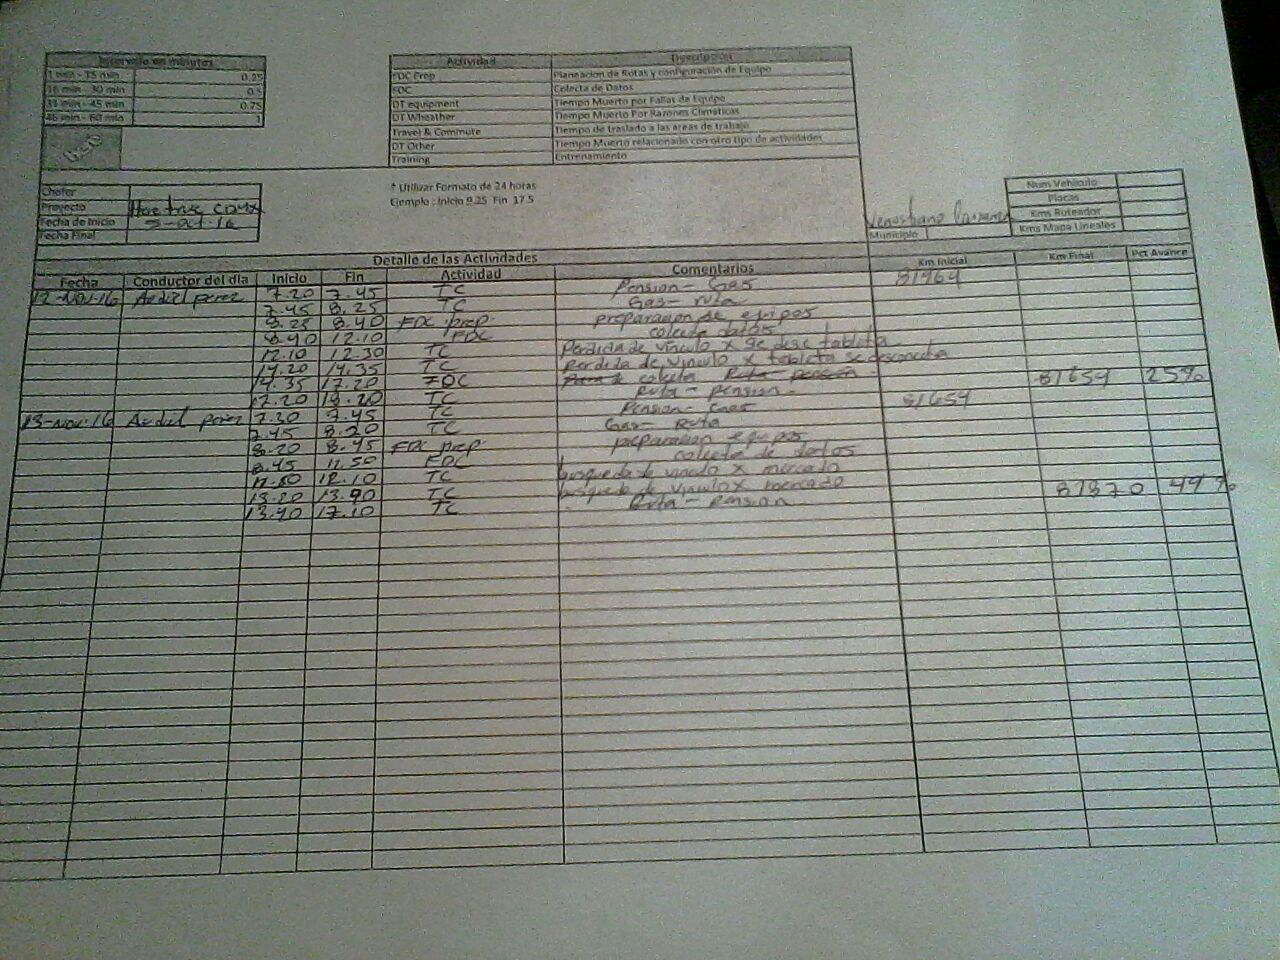 Intervalo en minutos
1 min - 15 min 0.25
16 min - 30 min 0.5
31 min - 45 min 0.75
46 min - 60 min 1
Actividad Descripcion
FDC Prep Planeacion de Rutas y configuración de Equipo
FDC Colecta de Datos
DT equipment Tiempo Muerto por Fallas de Equipo
DT Wheather Tiempo Muerto Por Razones Climaticas
Travel & Commute Tiempo de traslado a las areas de trabajo
DT Other Tiempo Muerto relacionado con otro tipo de actividades
Training Entrenamiento
here
Chofer
Proyecto Here True CDMX
Fecha de Inicio 5-oct-16
Fecha Final
* Utilizar Formato de 24 horas
Ejemplo : Inicio 8.25 Fin 17.5
Venustiano Carranza
Municipio
Num Vehiculo
Placas
Kms Ruteador
Kms Mapa Lineales
Detalle de las Actividades
Fecha Conductor del dia Inicio Fin Actividad Comentarios Km Inicial Km Final Pct Avance
12-Nov-16 perez 7.20 7.45 TC Pension - Gas
7.45 8.25 TC Gas - ruta
8.25 8.40 FDC prep preparacion de equipos
8.40 12.10 FDC colecta datos
12.10 12.30 TC Perdida de vinculo x se desc tableta
14.20 14.35 TC perdida de vinculo x tableta se desconecta
14.35 17.20 FDC colecta 81654 25%
17.20 TC Ruta - pension
13-Nov-16 perez 7.20 7.45 TC Pension - Gas 81654
7.45 8.20 TC Gas - Ruta
8.20 8.45 FDC prep preparacion equipos
8.45 11.50 FDC colecta de datos
11.50 12.10 TC busqueda de vinculo x mercado
13.20 13.40 TC busqueda de vinculo x mercado
13.40 17.10 TC Ruta - Pension 81870 44%